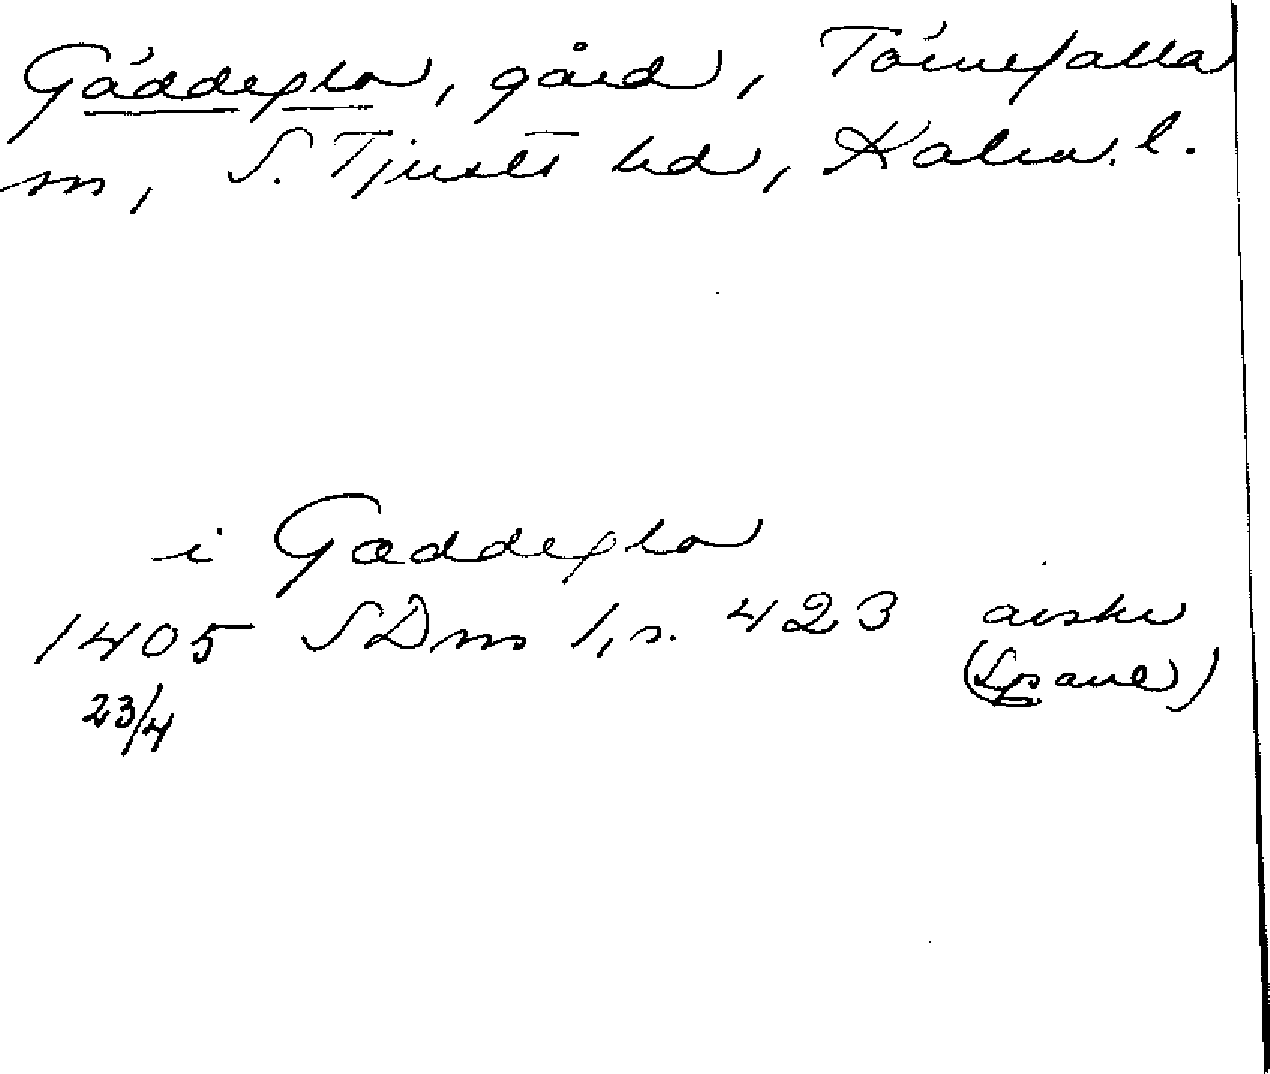 Gäddeglo, gård, Törnesfalla
sn, S. Tjusts hd, Kalm. l.
i Gæddeglo
1405 SDns 1, s. 423 avskr
23/4 (Spane)